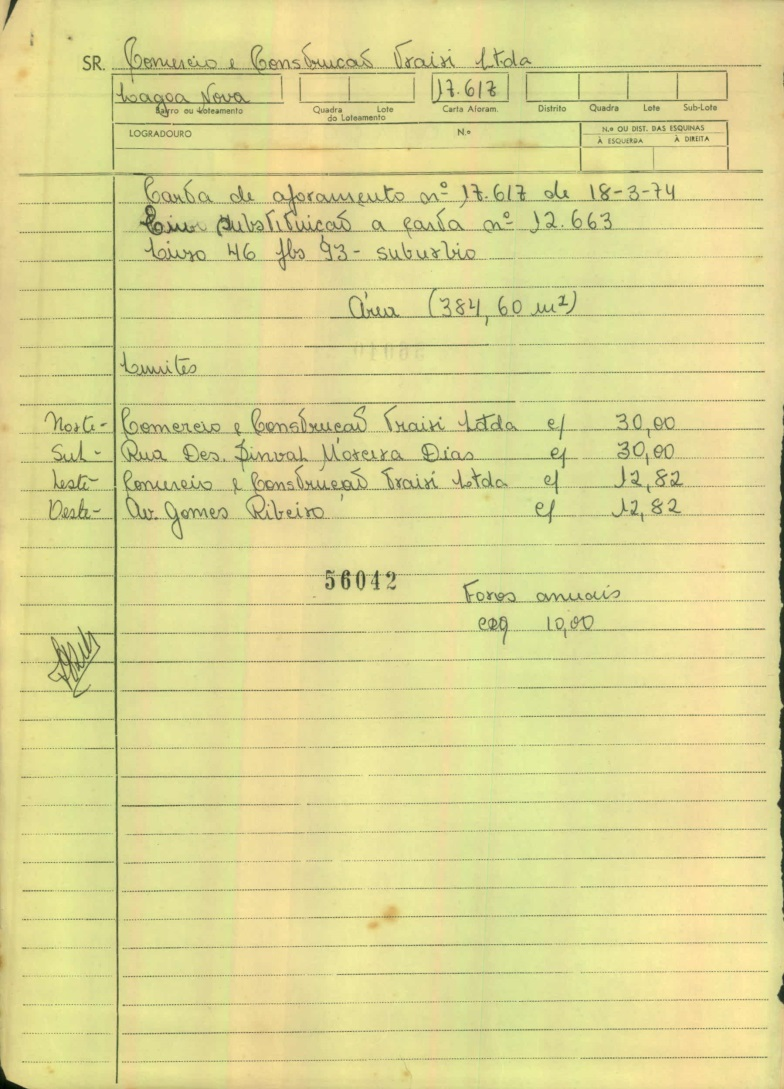 SR. Comercio e Construcaõ Traisi Ltda
Lagoa Nova 17.617
Bairro ou Loteamento Quadra Lote do Loteamento Carta Aforam. Distrito Quadra Lote Sub-Lote
LOGRADOURO N.º N.º OU DIST. DAS ESQUINAS
À ESQUERDA À DIREITA
Carta de aforamento nº 17.617 de 18-3-74
Em substituicaõ a carta nº 12.663
Livro 46 fls 93 - suburbio
Área (384,60 m²)
Limites
Norte - Comercio e Construcaõ Traisi Ltda c/ 30,00
Sul - Rua Des. Sinval Moreira Dias c/ 30,00
Leste - Comercio e Construcaõ Traisi Ltda c/ 12,82
Oeste - Av. Gomes Ribeiro c/ 12,82
56042
Foros anuais
10,00